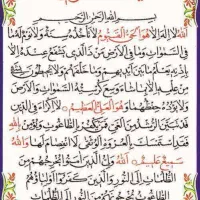 بسم الله الرحمن الرحيم
الله لا إله إلا هو الحي القيوم لا تأخذه سنة ولا نوم له ما
في السموات وما في الأرض من ذا الذي يشفع عنده إلا
بإذنه يعلم ما بين أيديهم وما خلفهم ولا يحيطون بشيء
من علمه إلا بما شاء وسع كرسيه السموات والأرض
ولا يؤده حفظهما وهو العلي العظيم لا إكراه في الدين
قد تبين الرشد من الغي فمن يكفر بالطاغوت ويؤمن بالله
فقد استمسك بالعروة الوثقى لا انفصام لها والله
سميع عليم الله ولي الذين آمنوا يخرجهم من
الظلمات إلى النور والذين كفروا أولياؤهم
الطاغوت يخرجونهم من النور إلى الظلمات